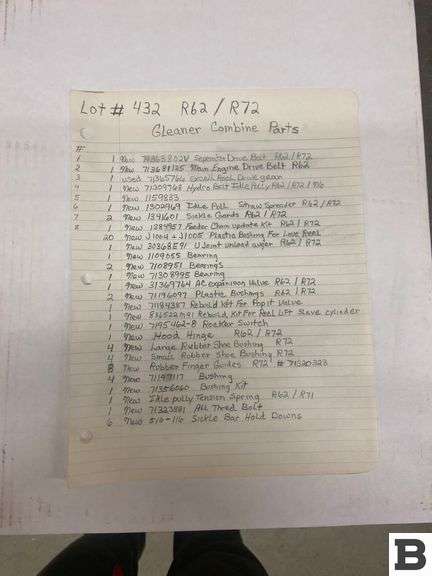 Lot # 432 R62/R72
Gleaner Combine Parts
#
1 1 New Seperator Drive Belt R62/R72
2 1 New 71368125 Main Engine Drive Belt R62
3 1 used Drive gear
4 1 New 71209768 Hydro Belt Idle Pully R62/R72
5 1 New 1159833
6 1 New 1302969 Idle Pull Straw Spreader R62/R72
7 2 New 1341601 Sickle Gards R62/R72
8 1 New 1289957 Feeder Chain update Kit R62/R72
20 New J1004 + J1005 Plastic Bushing For
1 New 30368591 U Joint unload auger R62/R72
1 New 1109055 Bearing
2 New 7108951 Bearings
1 New 71308995 Bearing
1 New 31369764 AC expansion Valve R62/R72
2 New 71196097 Plastic Bushings R62/R72
1 New 71184387 Rebuild Kit For Poppit Valve
1 New Rebuild Kit For Reel Lift Slave cylinder
1 New 7195462-8 Rocker Switch
1 New Hood Hinge R62/R72
4 New Large Rubber Shoe Bushing R72
4 New Small Rubber Shoe Bushing R72
8 New Rubber Finger Guides R72 # 71320323
4 New 71197117 Bushing
1 New 71356060 Bushing Kit
1 New Idle pully Tension Spring R62/R71
1 New 71323881 All Thred Bolt
6 New 516-116 Sickle Bar Hold Downs
B